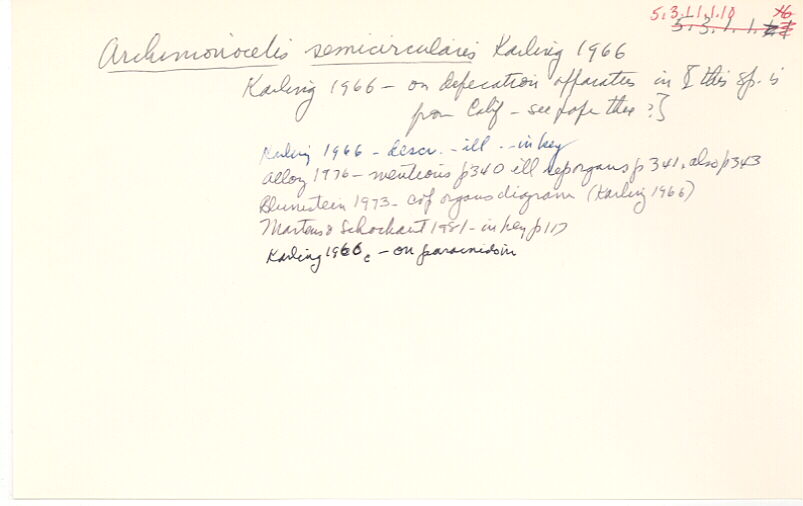 5.3.11.1.10 X6
5.3.1.1.
Archimonocelis semicircularis Karling 1966
Karling 1966 - on defecation apparates in [this sp. is
from Calif - see pape thee ?]
Karling 1966 - descr. - ill. - in key
1976 - mentions p340 ill reporgans p 341, also p343
1973 - cop organs diagram (Karling 1966)
Martens & Schockaert 1981 - in key p117
Karling 1966c - on paracnidsin